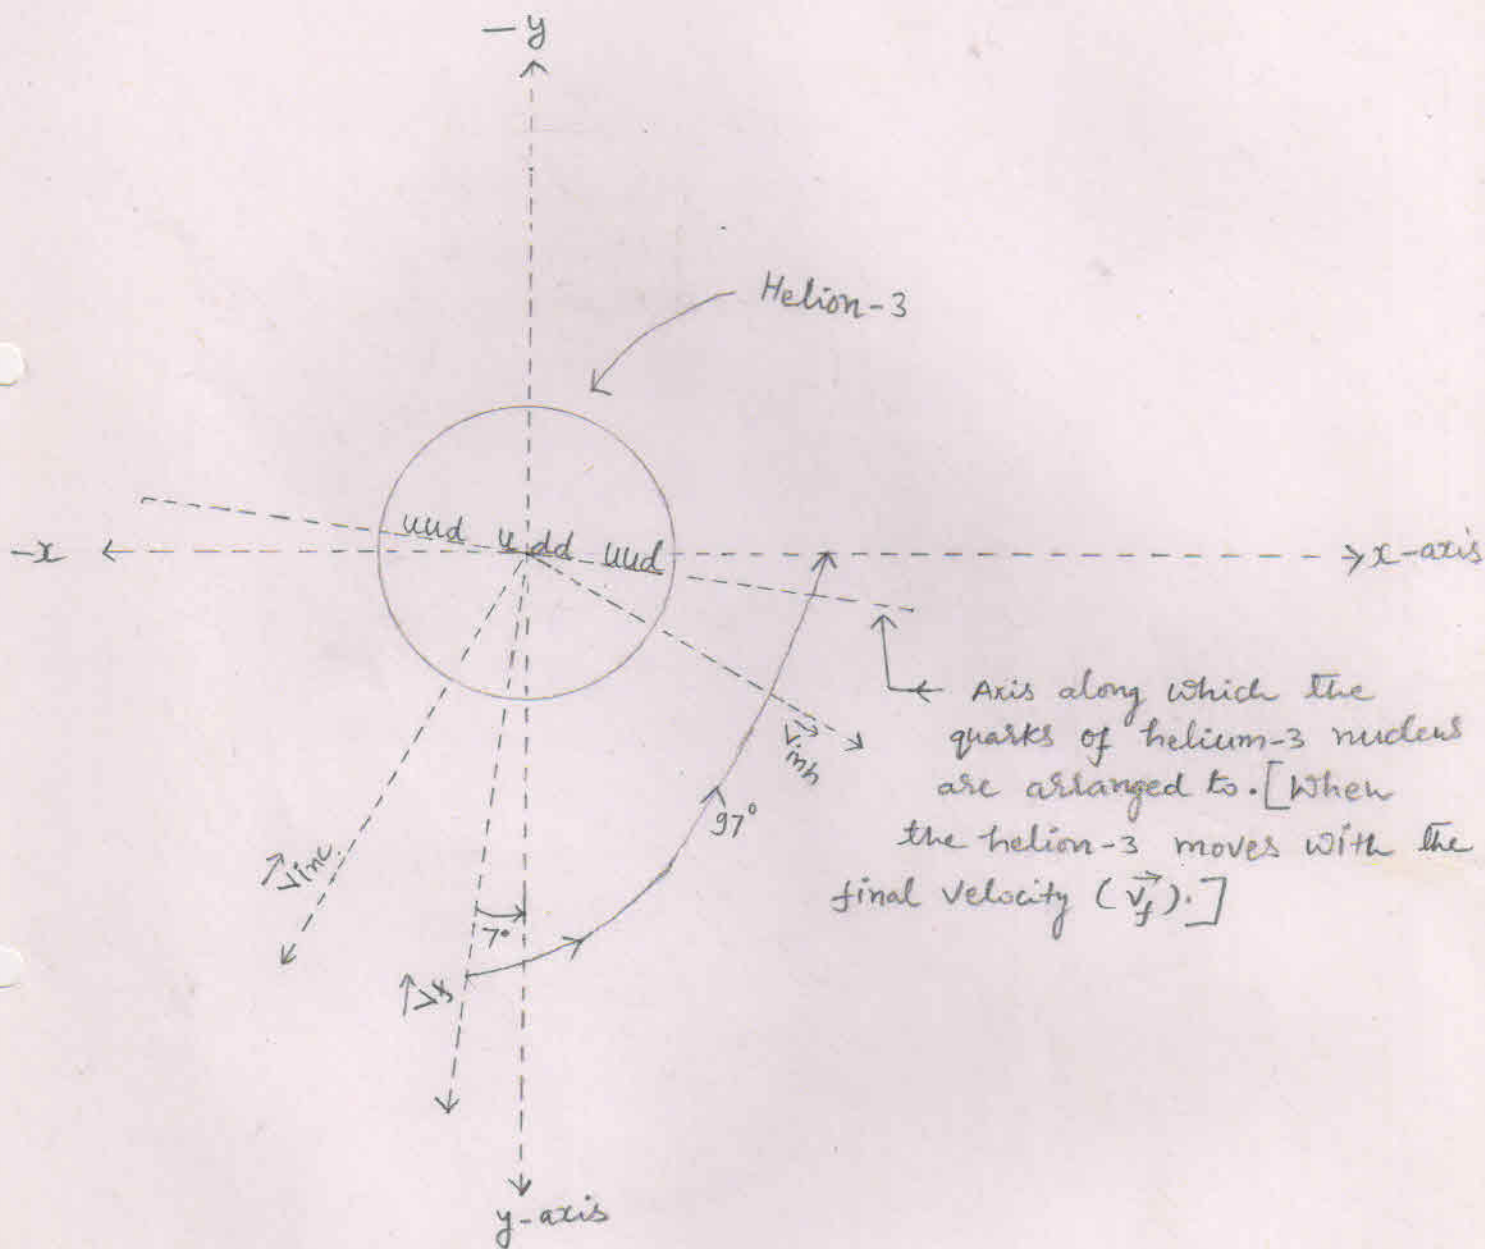 -y
Helion-3
uud udd uud
-x
x-axis
Axis along which the
quarks of helium-3 nucleus
are arranged to. [When
the helion-3 moves with the
final velocity (v⃗f).]
v⃗inh
97°
v⃗inc.
7°
v⃗f
y-axis